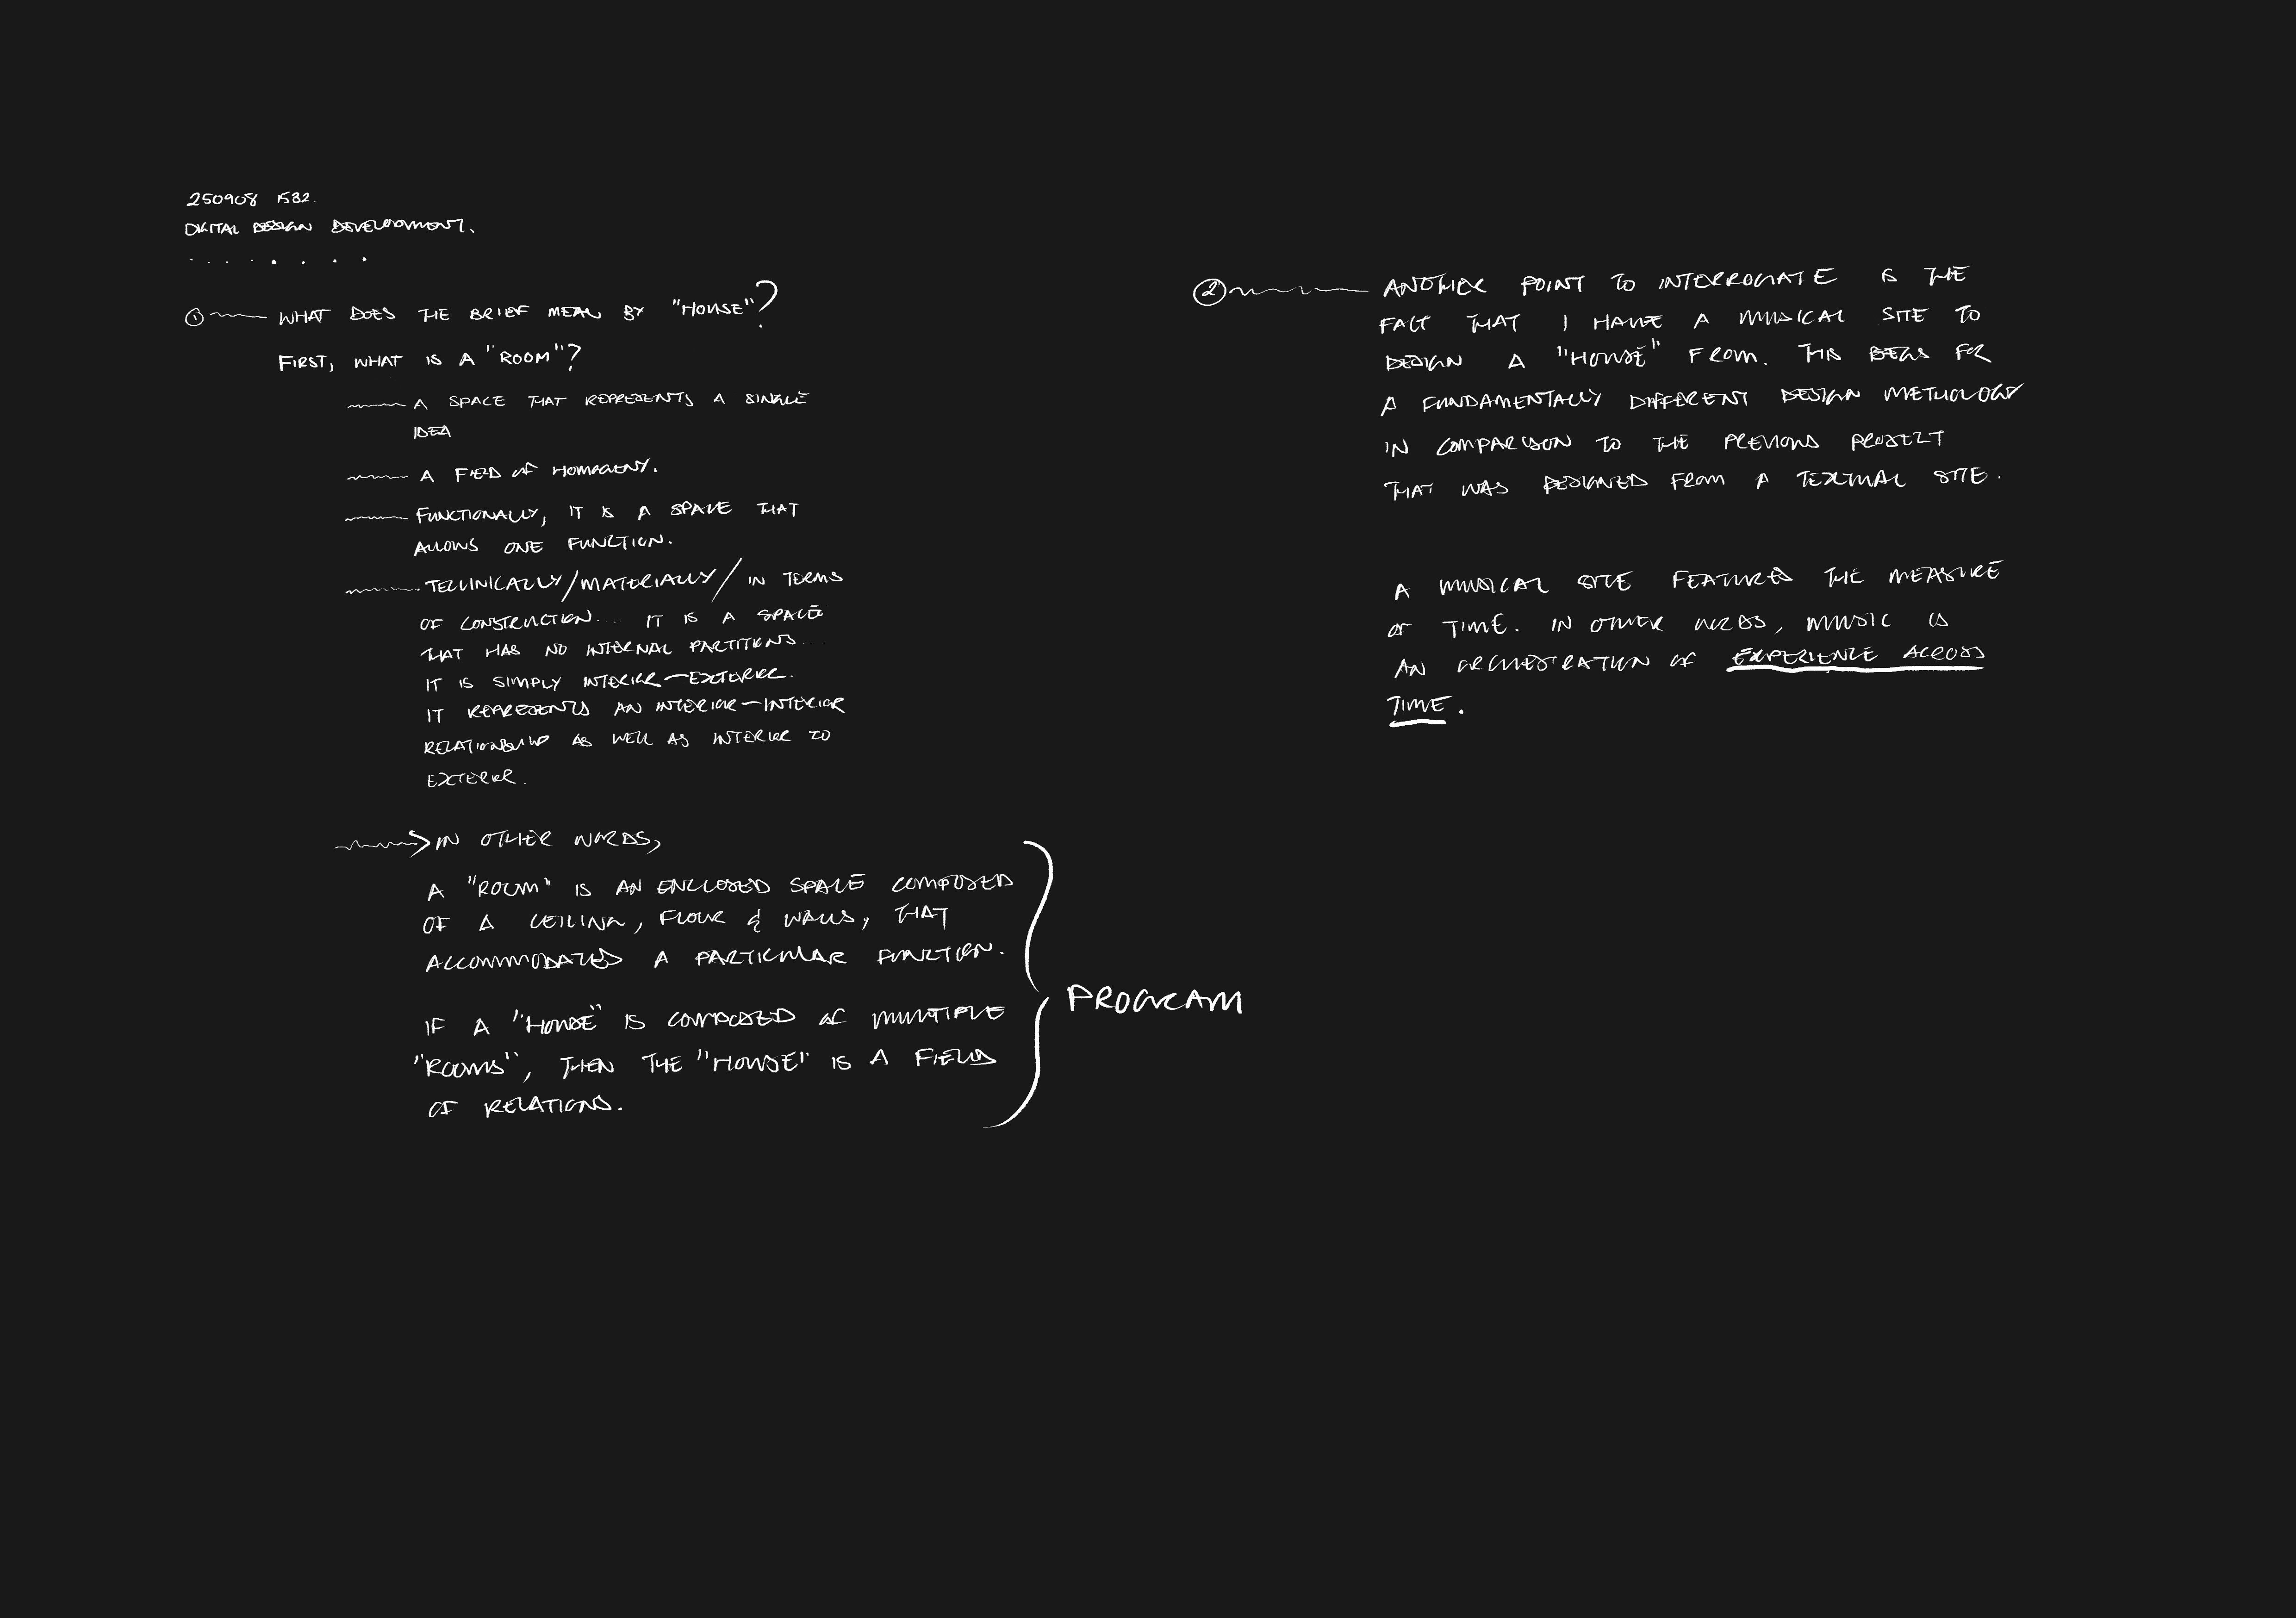 250908 1532.
DIGITAL DESIGN DEVELOPMENT.
. . . . . . . .
① WHAT DOES THE BRIEF MEAN BY "HOUSE"?
FIRST, WHAT IS A "ROOM"?
A SPACE THAT REPRESENTS A SINGLE
IDEA
A FIELD OF HOMOGENY.
FUNCTIONALLY, IT IS A SPACE THAT
ALLOWS ONE FUNCTION.
TECHNICALLY/MATERIALLY/IN TERMS
OF CONSTRUCTION... IT IS A SPACE
THAT HAS NO INTERNAL PARTITIONS...
IT IS SIMPLY INTERIOR—EXTERIOR.
IT REPRESENTS AN INTERIOR—INTERIOR
RELATIONSHIP AS WELL AS INTERIOR TO
EXTERIOR.
IN OTHER WORDS,
A "ROOM" IS AN ENCLOSED SPACE COMPOSED
OF A CEILING, FLOOR & WALLS, THAT
ACCOMMODATES A PARTICULAR FUNCTION.
IF A "HOUSE" IS COMPOSED OF MULTIPLE
"ROOMS", THEN THE "HOUSE" IS A FIELD
OF RELATIONS.
PROGRAM
② ANOTHER POINT TO INTERROGATE IS THE
FACT THAT I HAVE A MUSICAL SITE TO
DESIGN A "HOUSE" FROM. THIS BEGS FOR
A FUNDAMENTALLY DIFFERENT DESIGN METHOLOGY
IN COMPARISON TO THE PREVIOUS PROJECT
THAT WAS DESIGNED FROM A TEXTUAL SITE.
A MUSICAL SITE FEATURES THE MEASURE
OF TIME. IN OTHER WORDS, MUSIC IS
AN ORCHESTRATION OF EXPERIENCE ACROSS
TIME.